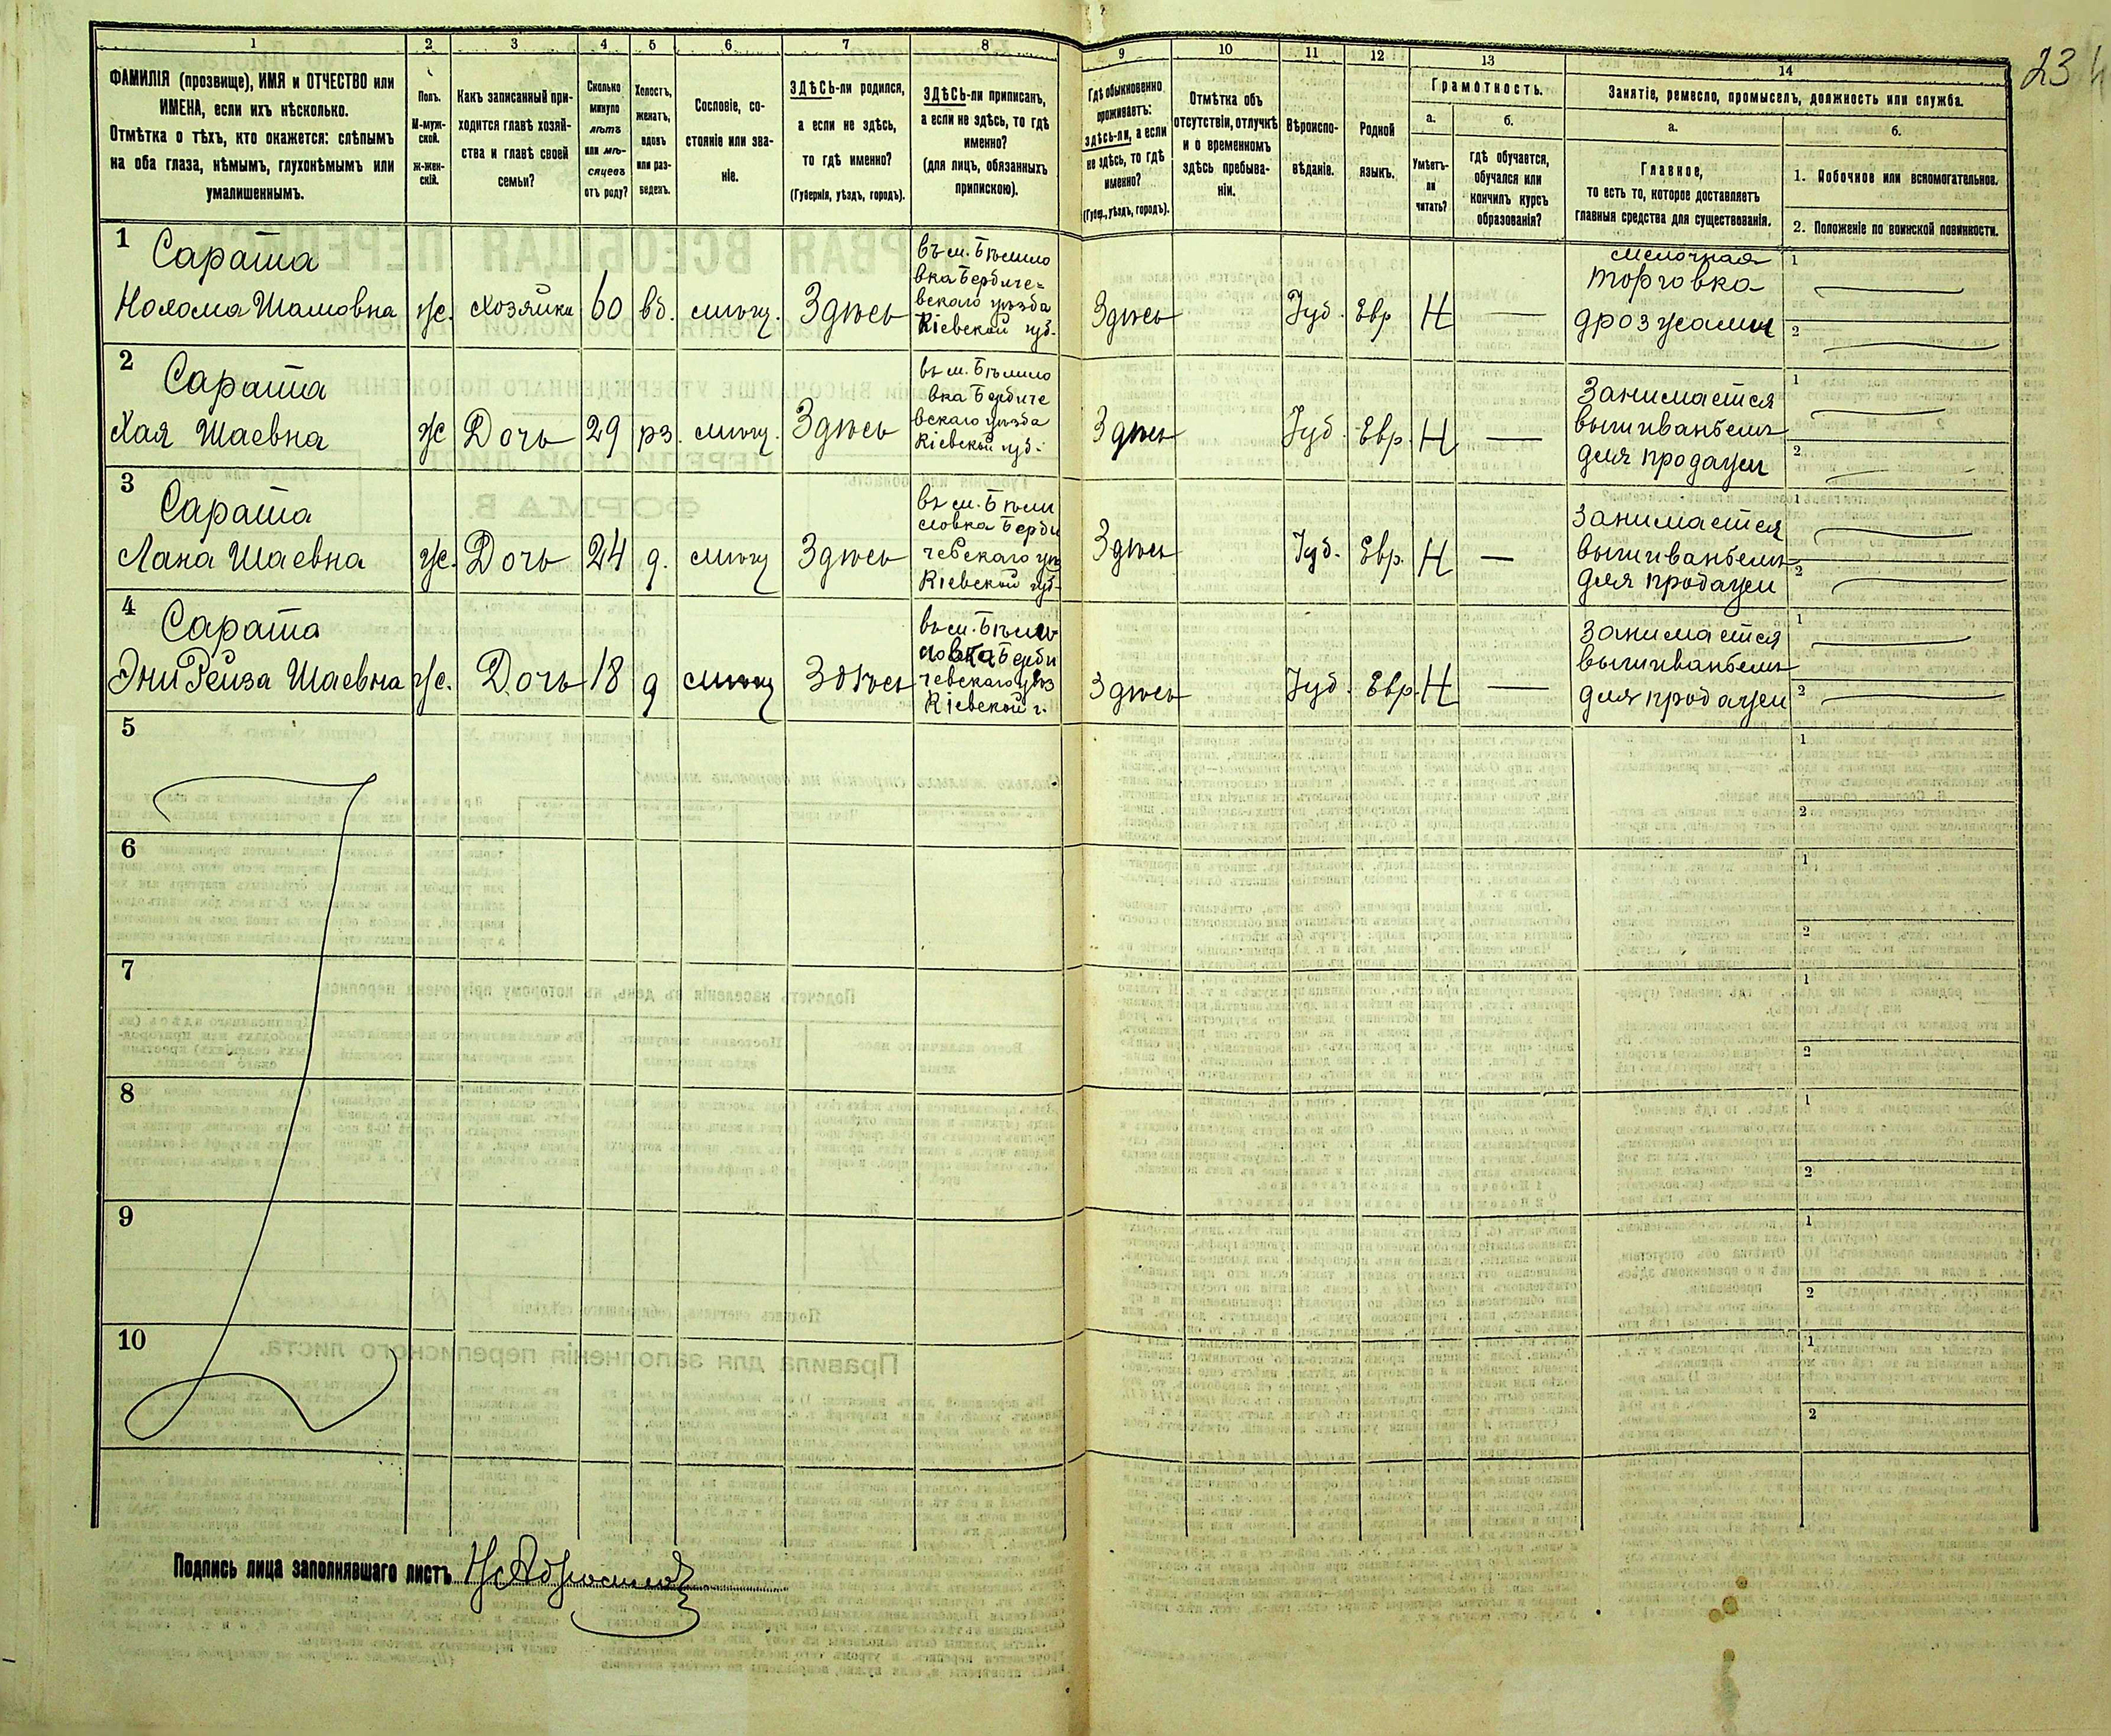 1 2 3 4 5 6 7 8 9 10 11 12 13 14
23
ФАМИЛІЯ (прозвище), ИМЯ и ОТЧЕСТВО или
ИМЕНА, если ихъ нѣсколько.
Отмѣтка о тѣхъ, кто окажется: слѣпымъ
на оба глаза, нѣмымъ, глухонѣмымъ или
умалишеннымъ.
Полъ.
М-муж-
ской.
ж-жен-
скій.
Какъ записанный при-
ходится главѣ хозяй-
ства и главѣ своей
семьи?
Сколько
минуло
лѣтъ
или мѣ-
сяцевъ
отъ роду?
Холостъ,
женатъ,
вдовъ
или раз-
веденъ.
Сословіе, со-
стояніе или зва-
ніе.
ЗДѢСЬ-ли родился,
а если не здѣсь,
то гдѣ именно?
(Губернія, уѣздъ, городъ).
ЗДѢСЬ-ли приписанъ,
а если не здѣсь, то гдѣ
именно?
(для лицъ, обязанныхъ
припискою).
Гдѣ обыкновенно
проживаетъ:
здѣсь-ли, а если
не здѣсь, то гдѣ
именно?
(Губер., уѣздъ, городъ).
Отмѣтка объ
отсутствіи, отлучкѣ
и о временномъ
здѣсь пребыва-
ніи.
Вѣроиспо-
вѣданіе.
Родной
языкъ.
Грамотность.
а.
Умѣетъ-
ли
читать?
б.
гдѣ обучается,
обучался или
кончилъ курсъ
образованія?
Занятіе, ремесло, промыселъ, должность или служба.
а.
Главное,
то есть то, которое доставляетъ
главныя средства для существованія.
б.
1. Побочное или вспомогательное.
2. Положеніе по воинской повинности.
1
Сарата
Нохома Шамовна
ж.
Хозяйка
60
вд.
мѣщ.
Здѣсь
въ м. Бѣлило
вка Бердиче-
вскаго уѣзда
Кіевской губ.
Здѣсь
Іуд.
Евр
Н
мелочная
торговка
дрожжами
1
2
2
Сарата
Хая Шаевна
ж
Дочь
29
рз.
мѣщ.
Здѣсь
въ м. Бѣлило
вка Бердиче
вскаго уѣзда
Кіевской губ.
Здѣсь
Іуд.
Евр.
Н
Занимается
вышиваньемъ
для продажи
1
2
3
Сарата
Лана Шаевна
ж.
Дочь
24
д.
мѣщ
Здѣсь
въ м. Бѣли
ловка Берди
чевскаго уѣз
Кіевской губ.
Здѣсь
Іуд.
Евр.
Н
Занимается
вышиваньемъ
для продажи
1
2
4
Сарата
Эни Рейза Шаевна
ж.
Дочь
18
д
мѣщ
Здѣсь
въ м. Бѣли
ловка Берди
чевскаго уѣз
Кіевской г.
Здѣсь
Іуд.
Евр.
Н
Занимается
вышиваньемъ
для продажи
1
2
5
1
2
6
1
2
7
1
2
8
1
2
9
1
2
10
1
2
Подпись лица заполнявшаго листъ